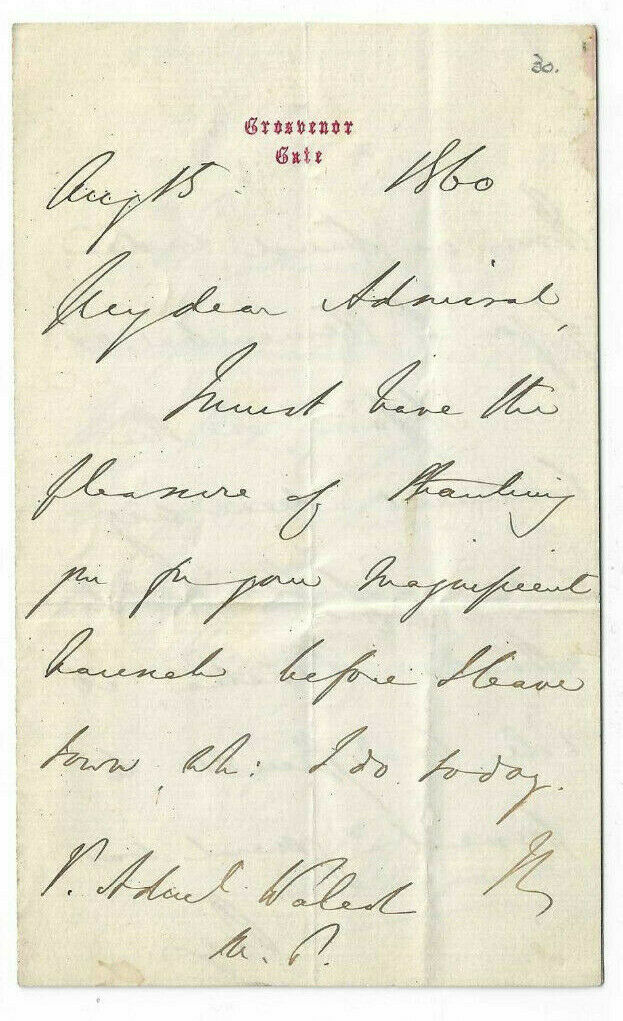 30.
Grosvenor
Gate
Aug 15 1860
My dear Admiral,
I must have the
pleasure of thanking
you for your magnificent
haunch before I leave
town, wh: I do today.
V. Adml Walcott
M. P.